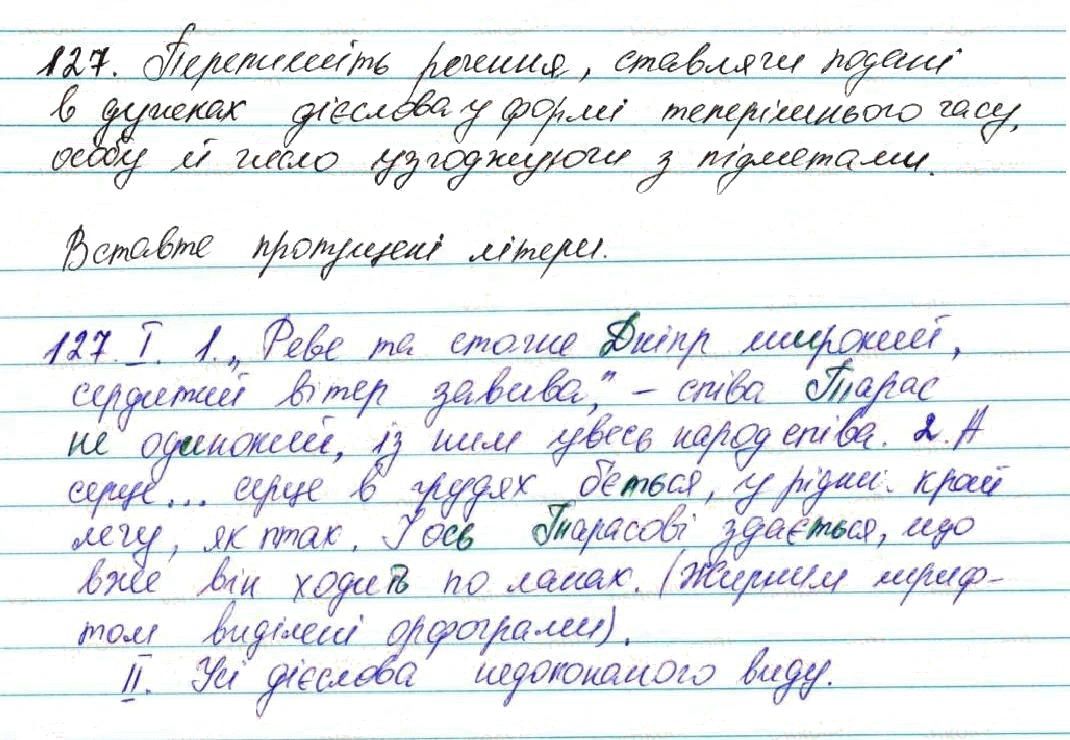 127. Перепишіть речення, ставлячи подані
в дужках дієслова у формі теперішнього часу,
особу й число узгоджуючи з підметами.
Вставте пропущені літери.
127. І. 1. „Реве та стогне Дніпр широкий,
сердитий вітер завива," – співа Тарас
не одинокий, із ним увесь народ співа. 2. А
серце... серце в грудях б'ється, у рідни. край
лечу, як птах. І ось Тарасові здається, що
вже він ходить по ланах. (Жирним шриф-
том виділені орфограми).
ІІ. Усі дієслова недоконаного виду.